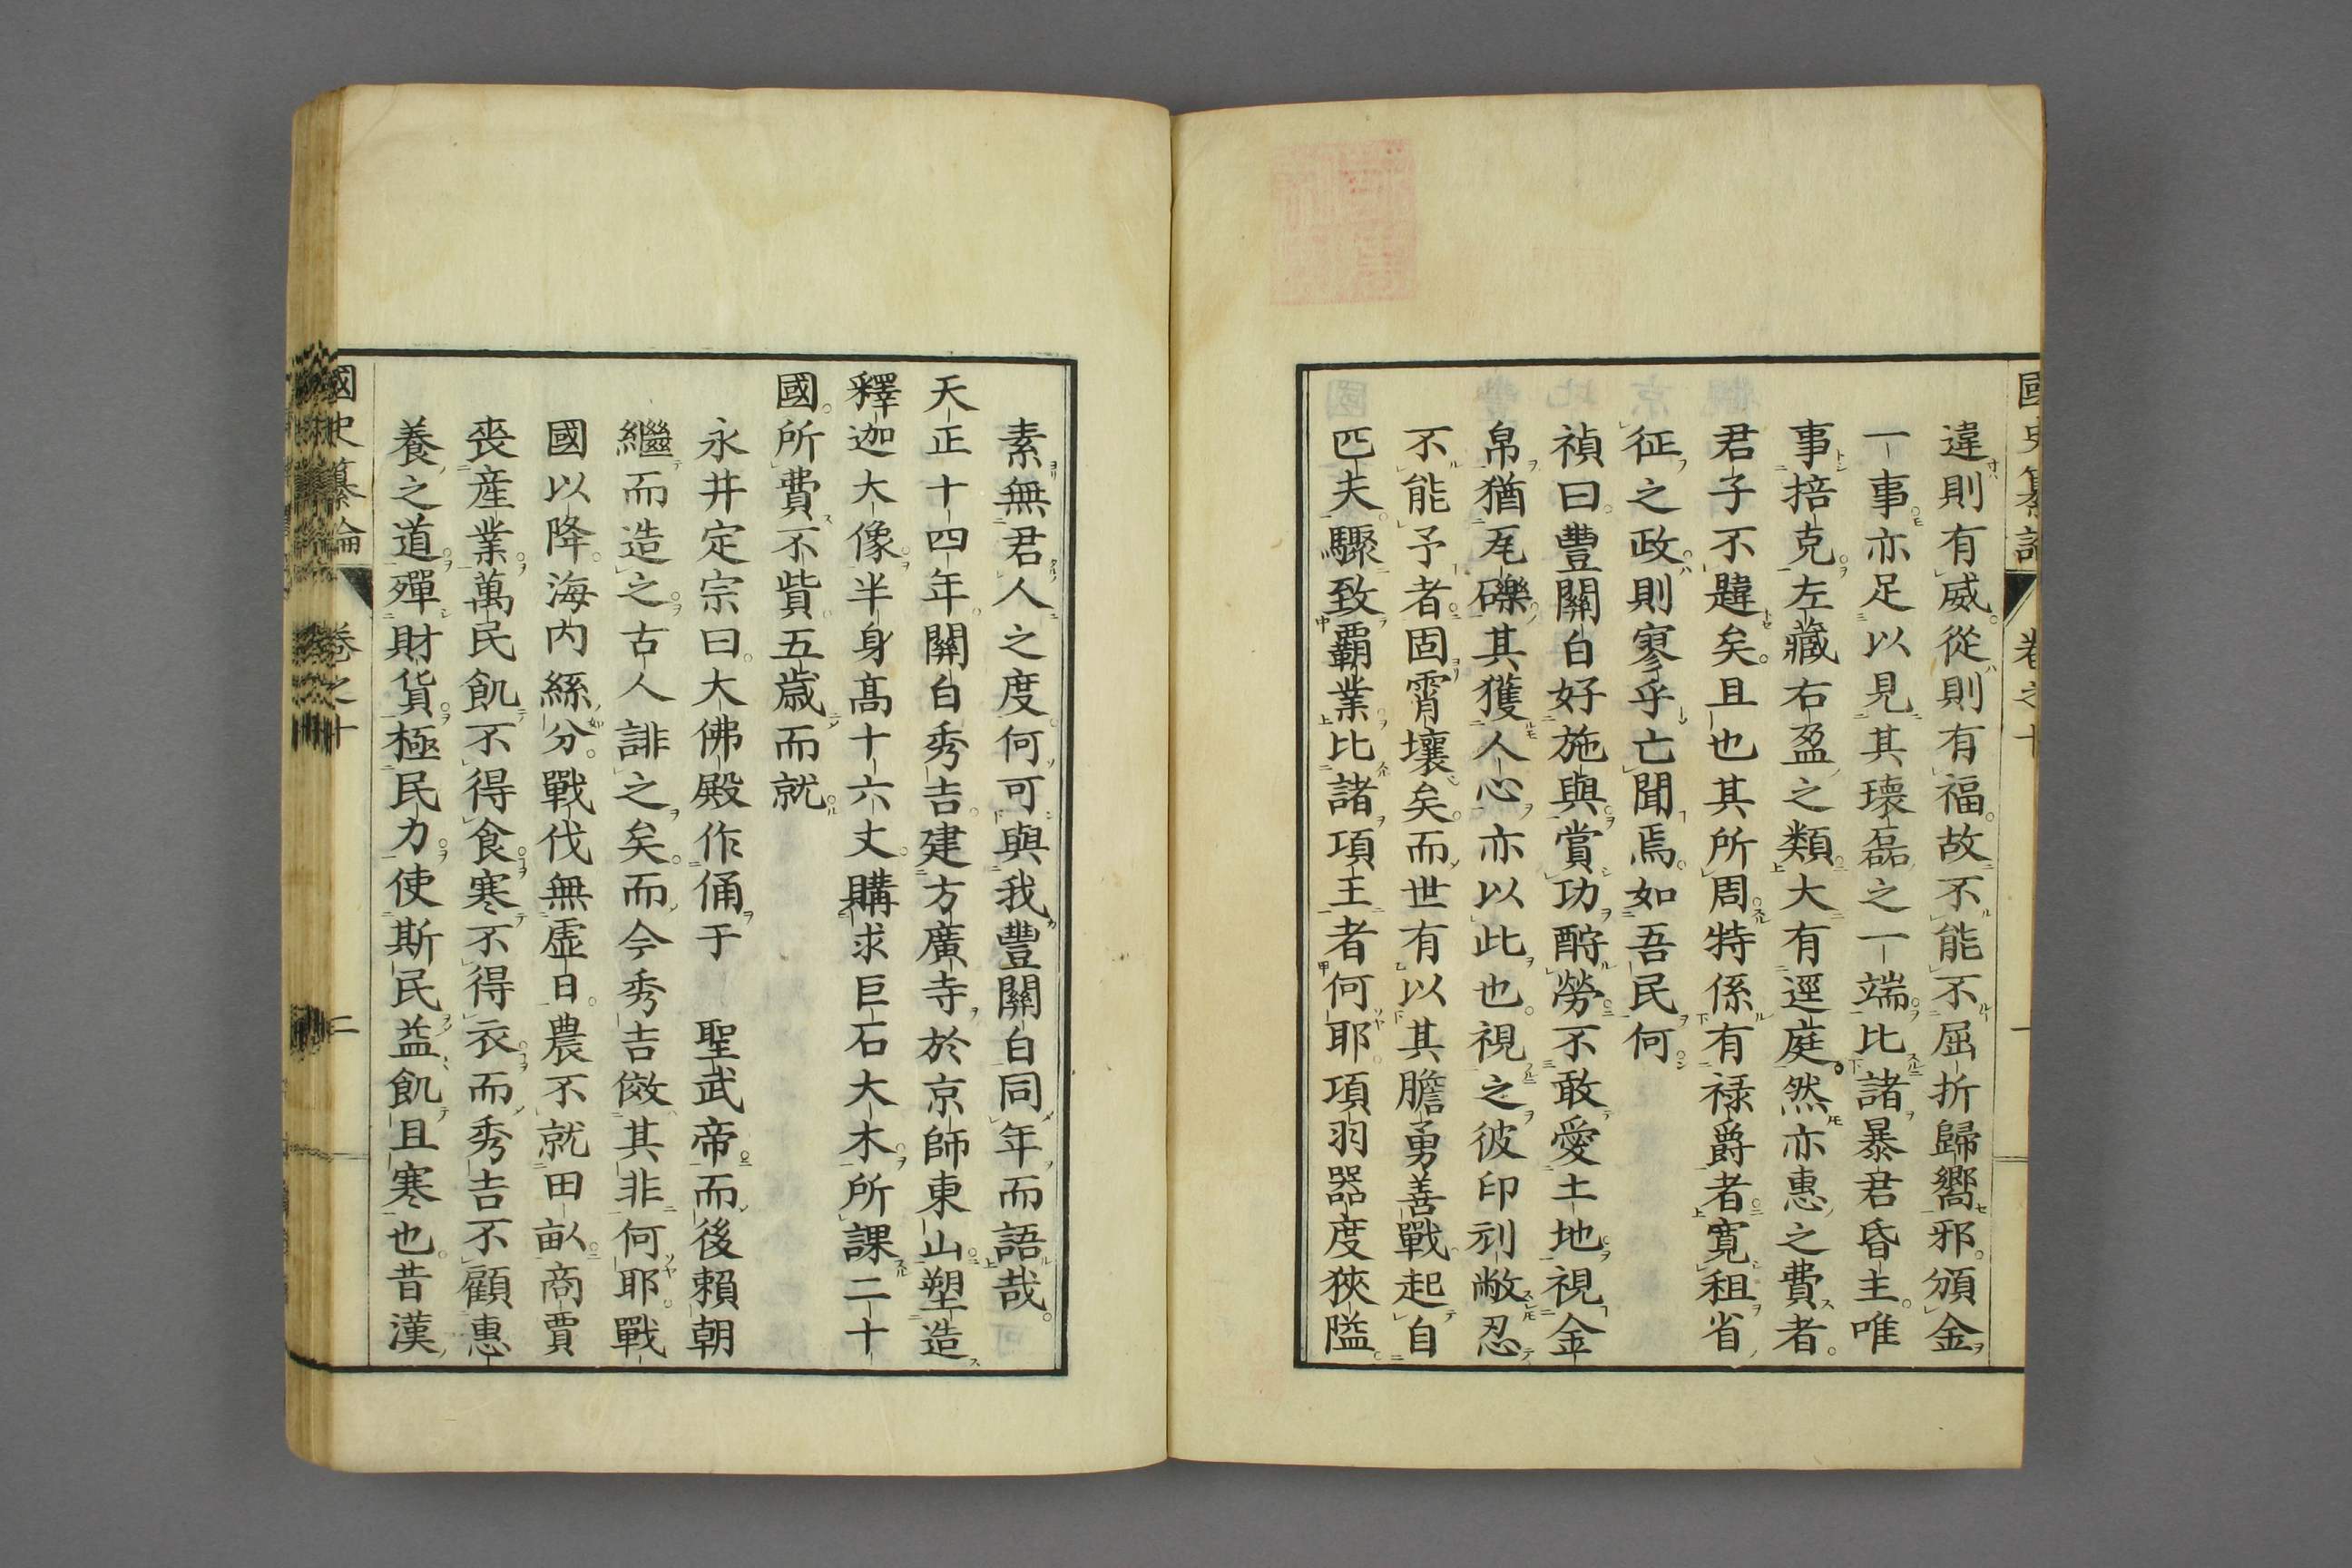 國史纂論 卷之十 一
違則有威從則有福故不能不屈折歸嚮邪頒金
一事亦足以見其瓌磊之一端比諸暴君昏主唯
事掊克左藏右盈之類大有逕庭然亦惠之費者
君子不韙矣且也其所周特係有祿爵者寬租省
征之政則寥乎亡聞焉如吾民何
禎曰豐關白好施與賞功酧勞不敢愛土地視金
帛猶瓦礫其獲人心亦以此也視之彼印刓敝忍
不能予者固霄壤矣而世有以其膽勇善戰起自
匹夫驟致霸業比諸項王者何耶項羽器度狹隘
素無君人之度何可與我豐關白同年而語哉
天正十四年關白秀吉建方廣寺於京師東山塑造
釋迦大像半身高十六丈購求巨石大木所課二十
國所費不貲五歲而就
永井定宗曰大佛殿作俑于 聖武帝而後賴朝
繼而造之古人誹之矣而今秀吉傚其非何耶戰
國以降海内絲分戰伐無虛日農不就田畝商賈
喪產業萬民飢不得食寒不得衣而秀吉不顧惠
養之道殫財貨極民力使斯民益飢且寒也昔漢
國史纂論 卷之十 二